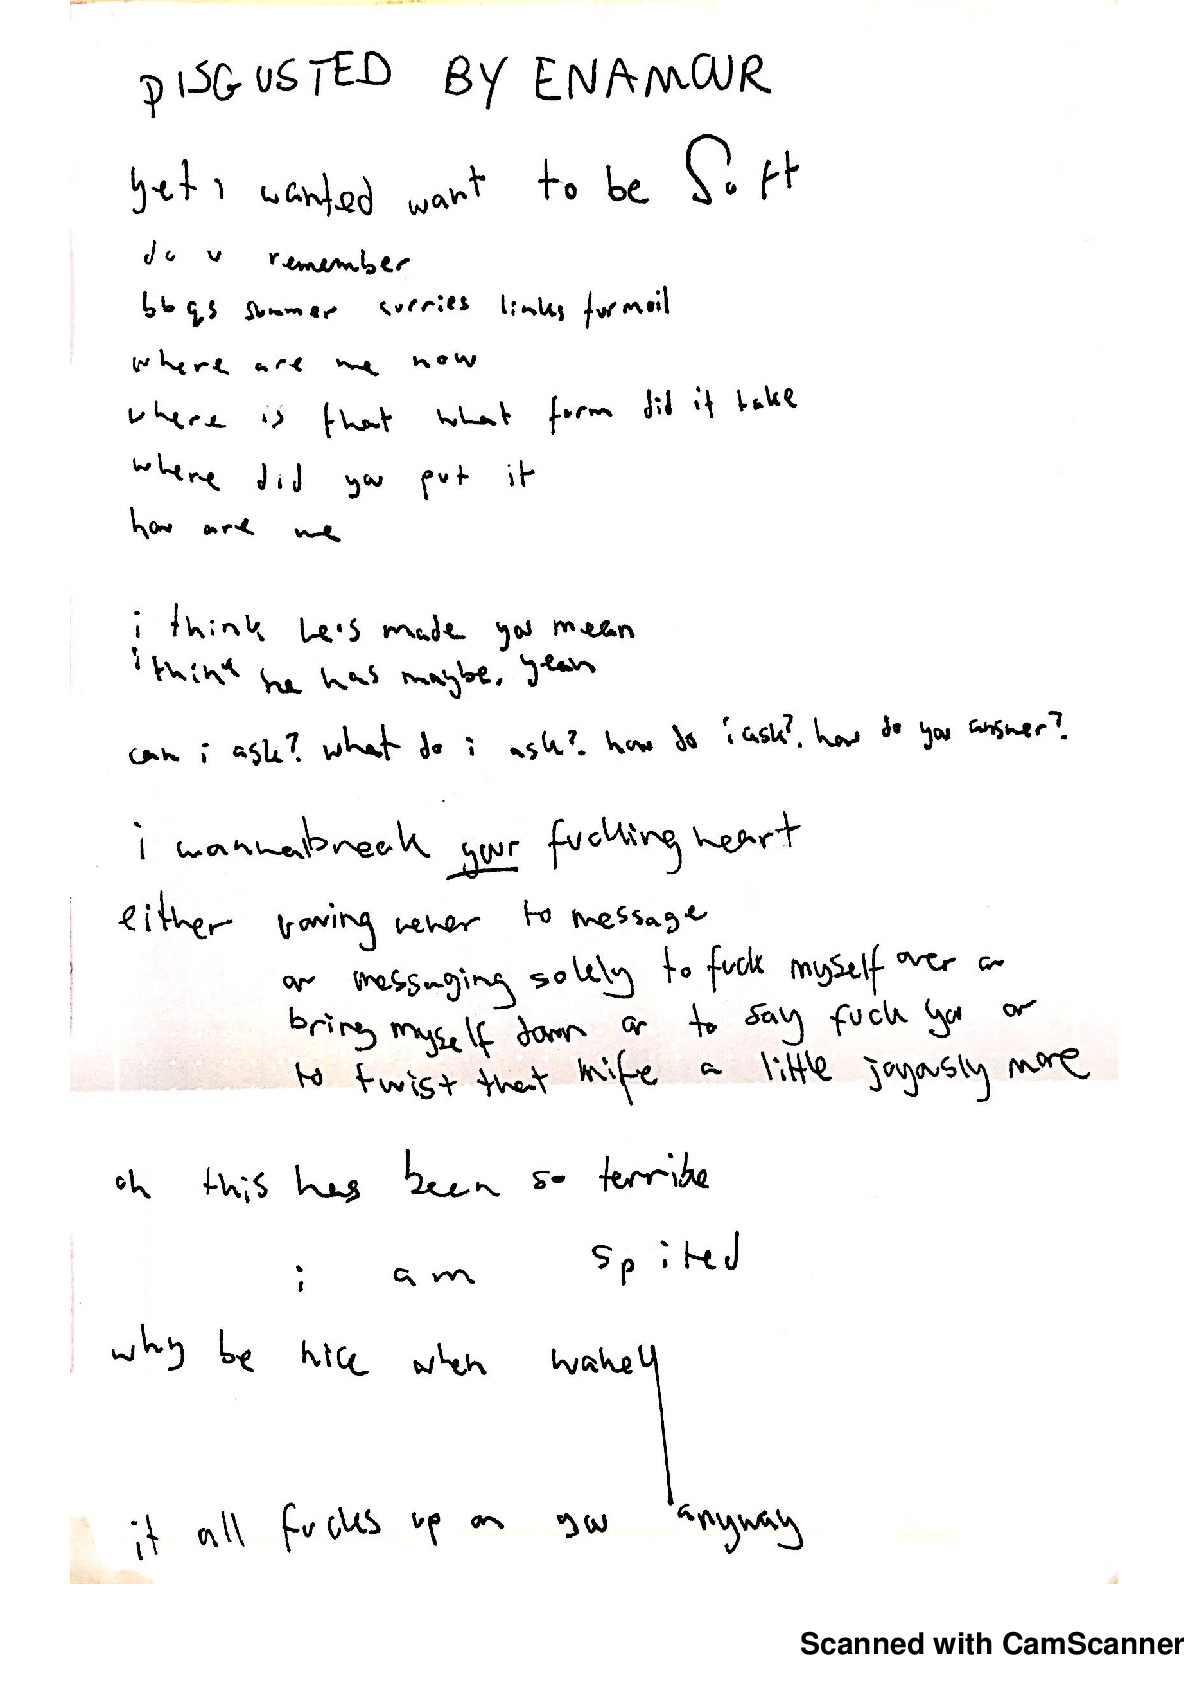 DISGUSTED BY ENAMOUR
yet i wanted want to be Soft
do u remember
bbqs summer curries links turmoil
where are we now
where is that what form did it take
where did you put it
how are we
i think he's made you mean
i think he has maybe. yeah
can i ask? what do i ask? how do i ask? how do you answer?
i wanna break your fucking heart
either vowing never to message
or messaging solely to fuck myself over or
bring myself down or to say fuck you or
to twist that knife a little joyously more
oh this has been so terrible
i am spited
why be nice when
it all fucks up on you anyway
Scanned with CamScanner